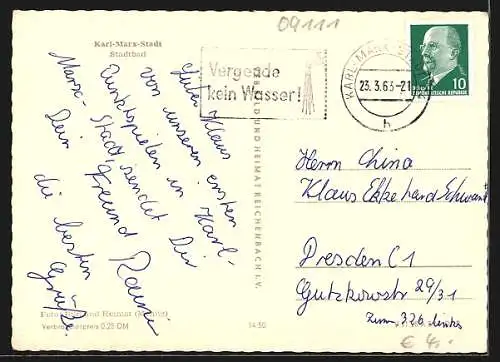 09111
Karl-Marx-Stadt
Stadtbad
Vergeude
kein Wasser!
KARL-MARX-
23.3.63-21
h
10
DEUTSCHE DEMOKRATISCHE REPUBLIK
Lieber Klaus
von unseren ersten
Punktspielen in Karl-
Marx-Stadt sendet Dir
Dein Freund Rainer
die besten
Grüße.
BILD UND HEIMAT REICHENBACH I.V.
Herrn China
Klaus Ekkehard
Dresden C1
Gutzkowstr 29/31
Zimm. 326 links
€ 4,-
Foto: Bild und Heimat
Verbraucherpreis 0,25 DM